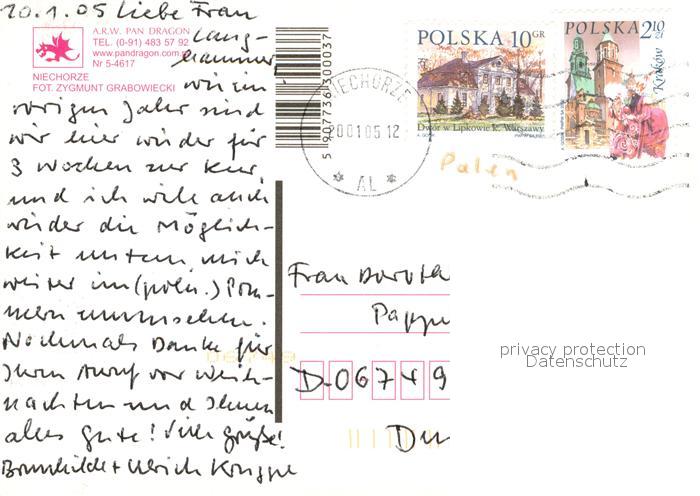 20.1.05 Liebe Frau
Lang-
hammer,
wie im
vorigen Jahr sind
wir hier wieder für
3 Wochen zur Kur,
und ich will auch
wieder die Möglich-
keit nutzen, mich
weiter im (poln.) Pom-
mern umzusehen.
Nochmals Danke für
Ihren Anruf vor Weih-
nachten und Ihnen
alles Gute! Viele Grüße!
Brunhilde + Ulrich
A.R.W. PAN DRAGON
TEL. (0-91) 483 57 92
www.pandragon.com.pl
Nr 5-4617
NIECHORZE
FOT. ZYGMUNT GRABOWIECKI
5 907736 300037
NIECHORZE
200105.12
* AL *
POLSKA 10 GR
Dwór w Lipkowie k. Warszawy
POLSKA 2,10 zł
Kraków
Polen
Frau Dorothe
Pappe
06749
D-06749
privacy protection
Datenschutz